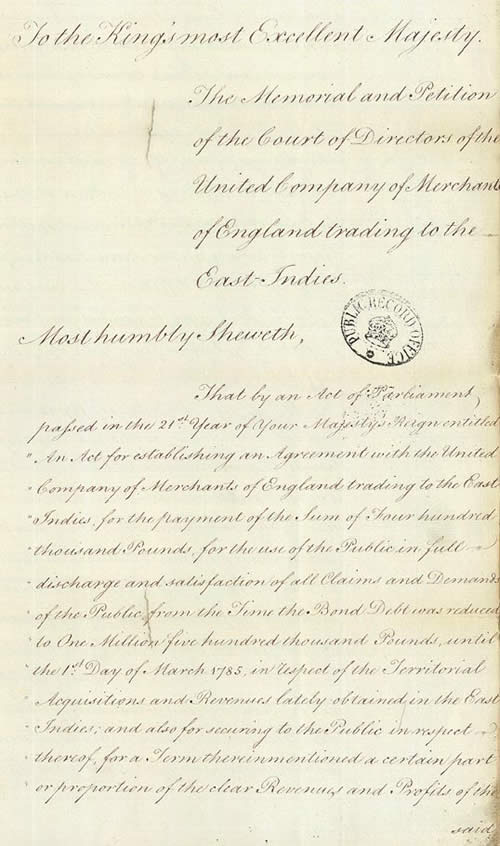 To the King's most Excellent Majesty.
The Memorial and Petition
of the Court of Directors of the
United Company of Merchants
of England trading to the
East-Indies.
PUBLIC RECORD OFFICE
Most humbly Sheweth,
That by an Act of Parliament,
passed in the 21st Year of Your Majesty's Reign entitled
"An Act for establishing an Agreement with the United
"Company of Merchants of England trading to the East
"Indies, for the payment of the Sum of Four hundred
"thousand Pounds, for the use of the Public in full
"discharge and satisfaction of all Claims and Demands
"of the Public, from the Time the Bond Debt was reduced
"to One Million five hundred thousand Pounds, until
"the 1st Day of March 1785, in respect of the Territorial
"Acquisitions and Revenues lately obtained, in the East
"Indies; and also for securing to the Public in respect
"thereof, for a Term thereinmentioned a certain part
"or proportion of the clear Revenues and Profits of the
said